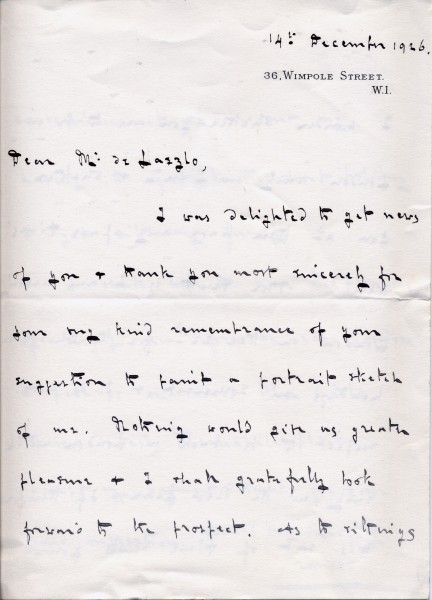 14th December 1926.
36, WIMPOLE STREET.
W.1.
Dear Mr de Laszlo,
I was delighted to get news
of you & thank you most sincerely for
your very kind remembrance of your
suggestion to paint a portrait sketch
of me. Nothing would give us greater
pleasure & I shall gratefully look
forward to the prospect. As to sittings